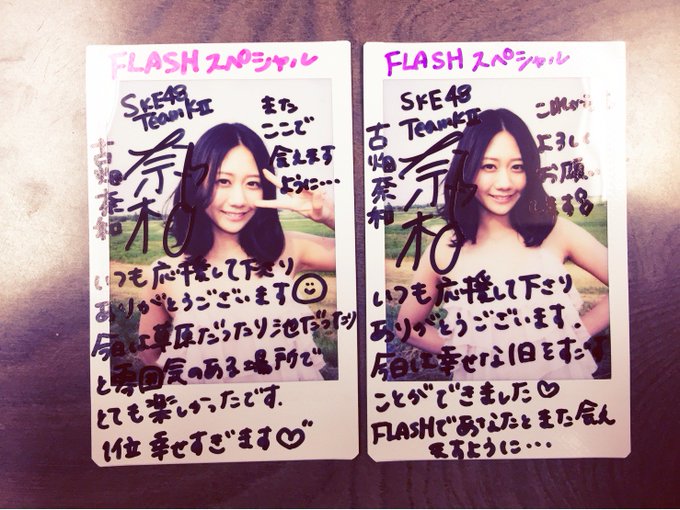 FLASHスペシャル
SKE48
TeamKⅡ
奈和
古畑奈和
また
ここで
会えます
ように…
いつも応援して下さり
ありがとうございます
今日は草原だったり池だったり
と雰囲気のある場所で
とても楽しかったです.
1位幸せすぎます♡
FLASHスペシャル
SKE48
TeamKⅡ
奈和
古畑奈和
これから
よろしく
お願い
します
いつも応援して下さり
ありがとうございます.
今日は幸せな1日をすごす
ことができました♡
FLASHであなたとまた会え
ますように…